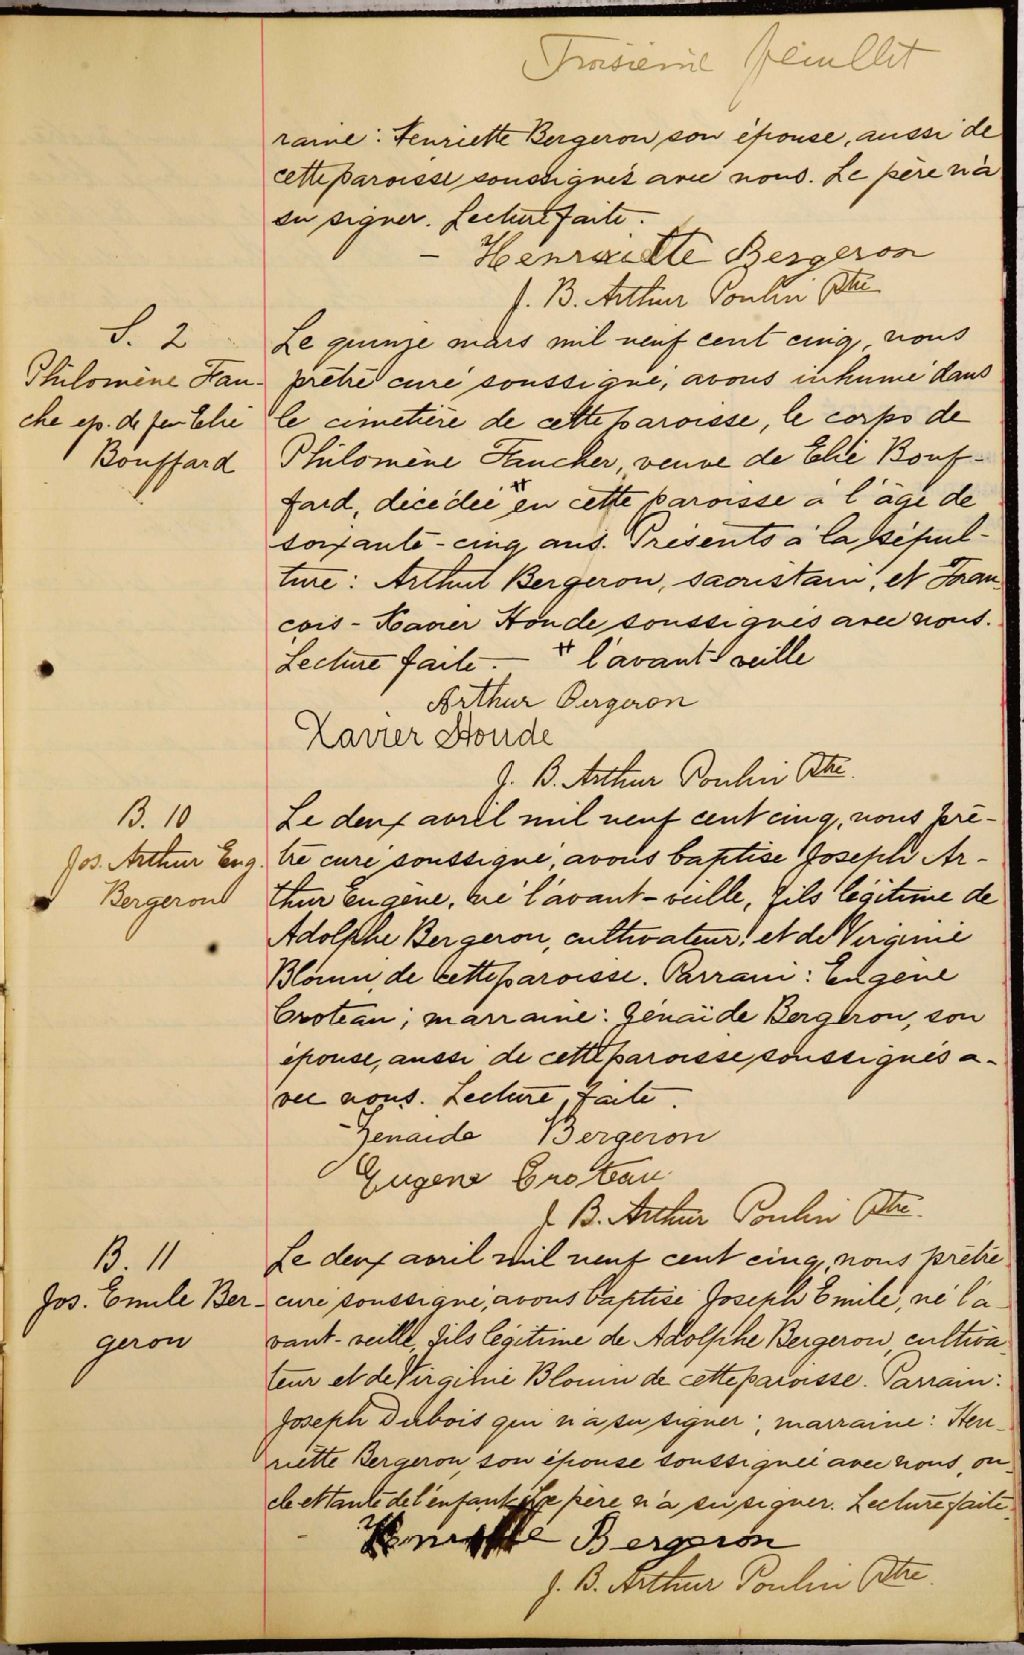 Troisième feuillet
raine : Henriette Bergeron, son épouse, aussi de
cette paroisse soussignés avec nous. Le père n'a
su signer. Lecture faite.
Henriette Bergeron
J. B. Arthur Poulin Ptre
S. 2
Philomène Fau-
che ep. de feu Elie
Bouffard
Le quinze mars mil neuf cent cinq, nous
prêtre curé soussigné, avons inhumé dans
le cimetière de cette paroisse, le corps de
Philomène Faucher, veuve de Elie Bouf-
fard, décédée # en cette paroisse à l'âge de
soixante-cinq ans. Présents à la sépul-
ture : Arthur Bergeron, sacristain, et Fran-
çois-Xavier Houde soussignés avec nous.
Lecture faite. — # l'avant-veille
Arthur Bergeron
Xavier Houde
J. B. Arthur Poulin Ptre.
B. 10
Jos. Arthur Eug.
Bergeron
Le deux avril mil neuf cent cinq, nous prê-
tre curé soussigné, avons baptisé Joseph Ar-
thur Eugène, né l'avant-veille, fils légitime de
Adolphe Bergeron, cultivateur, et de Virginie
Blouin, de cette paroisse. Parrain : Eugène
Croteau ; marraine : Zénaïde Bergeron, son
épouse, aussi de cette paroisse, soussignés a-
vec nous. Lecture faite.
Zenaide Bergeron
Eugene Croteau
J. B. Arthur Poulin Ptre.
B. 11
Jos. Emile Ber-
geron
Le deux avril mil neuf cent cinq, nous prêtre
curé soussigné, avons baptisé Joseph Emile, né l'a-
vant-veille, fils légitime de Adolphe Bergeron, cultiva-
teur et de Virginie Blouin de cette paroisse. Parrain :
Joseph Dubois qui n'a su signer ; marraine : Hen-
riette Bergeron, son épouse soussignée avec nous, on-
cle et tante de l'enfant. Le père n'a su signer. Lecture faite.
Henriette Bergeron
J. B. Arthur Poulin Ptre.